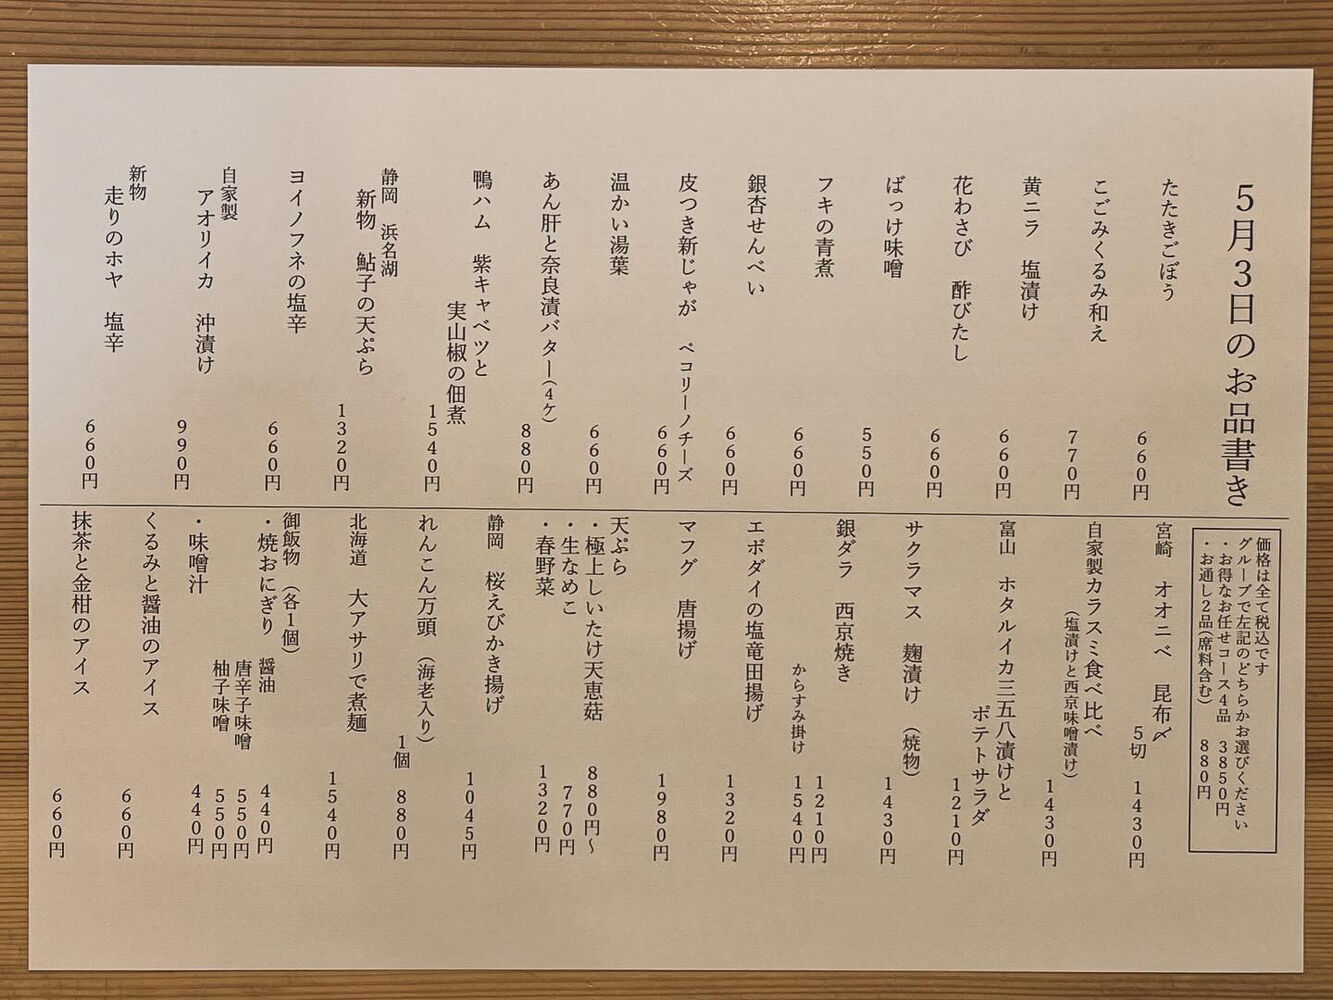 5月3日のお品書き
たたきごぼう
660円
こごみくるみ和え
770円
黄ニラ 塩漬け
660円
花わさび 酢びたし
660円
ばっけ味噌
550円
フキの青煮
660円
銀杏せんべい
660円
皮つき新じゃが ペコリーノチーズ
660円
温かい湯葉
660円
あん肝と奈良漬バター(4ケ)
880円
鴨ハム 紫キャベツと
実山椒の佃煮
1540円
静岡 浜名湖
新物 鮎子の天ぷら
1320円
ヨイノフネの塩辛
660円
自家製
アオリイカ 沖漬け
990円
新物
走りのホヤ 塩辛
660円
価格は全て税込です
グループで左記のどちらかお選びください
・お得なお任せコース4品 3850円
・お通し2品(席料含む) 880円
宮崎 オオニベ 昆布〆
5切 1430円
自家製カラスミ食べ比べ
(塩漬けと西京味噌漬け)
1430円
富山 ホタルイカ三五八漬けと
ポテトサラダ
1210円
サクラマス 麹漬け (焼物)
1430円
銀ダラ 西京焼き
1210円
からすみ掛け 1540円
エボダイの塩竜田揚げ
1320円
マフグ 唐揚げ
1980円
天ぷら
・極上しいたけ天恵菇 880円〜
・生なめこ 770円
・春野菜 1320円
静岡 桜えびかき揚げ
1045円
れんこん万頭 (海老入り)
1個 880円
北海道 大アサリで煮麺
1540円
御飯物 (各1個)
・焼おにぎり 醤油 440円
唐辛子味噌 550円
柚子味噌 550円
・味噌汁 440円
くるみと醤油のアイス
660円
抹茶と金柑のアイス
660円